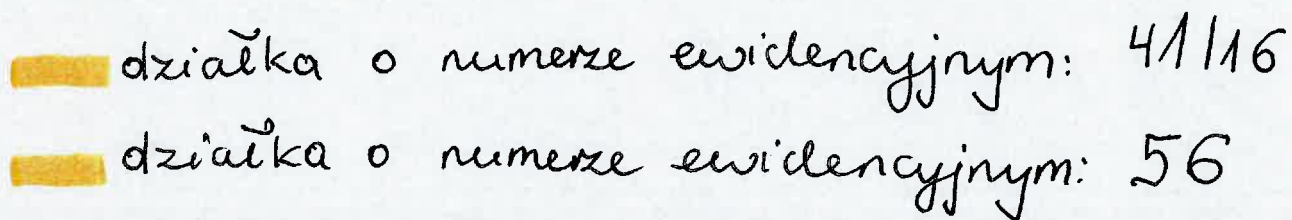 działka o numerze ewidencyjnym: 41/16
działka o numerze ewidencyjnym: 56